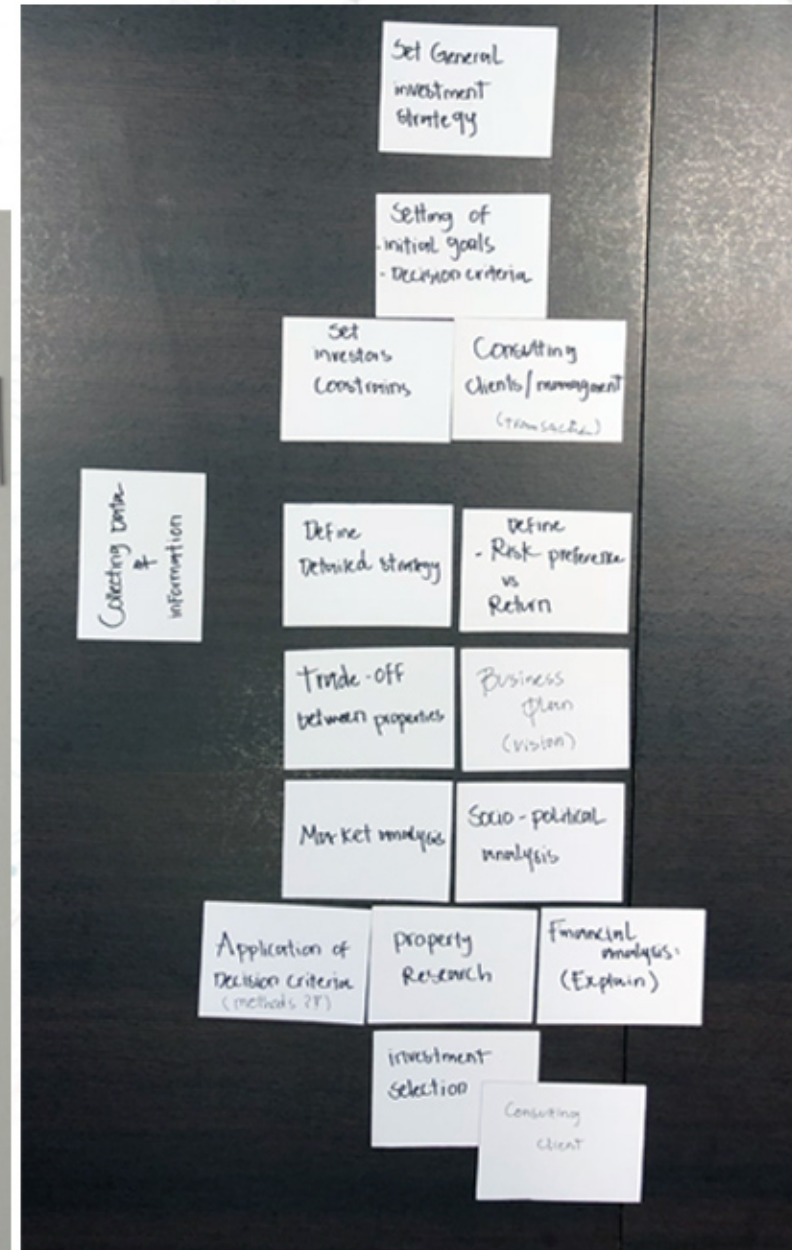 Set General
investment
Strategy
Setting of
- initial goals
- Decision criteria
Set
investors
Constrains
Consulting
clients/managment
(transaction)
Collecting Data
&
information
Define
Detailed strategy
Define
- Risk preference
vs
Return
Trade-off
between properties
Business
plan
(vision)
Market analysis
Socio-political
analysis
Application of
Decision criteria
(methods ??)
property
Research
Financial
analysis:
(Explain)
investment
selection
Consulting
client